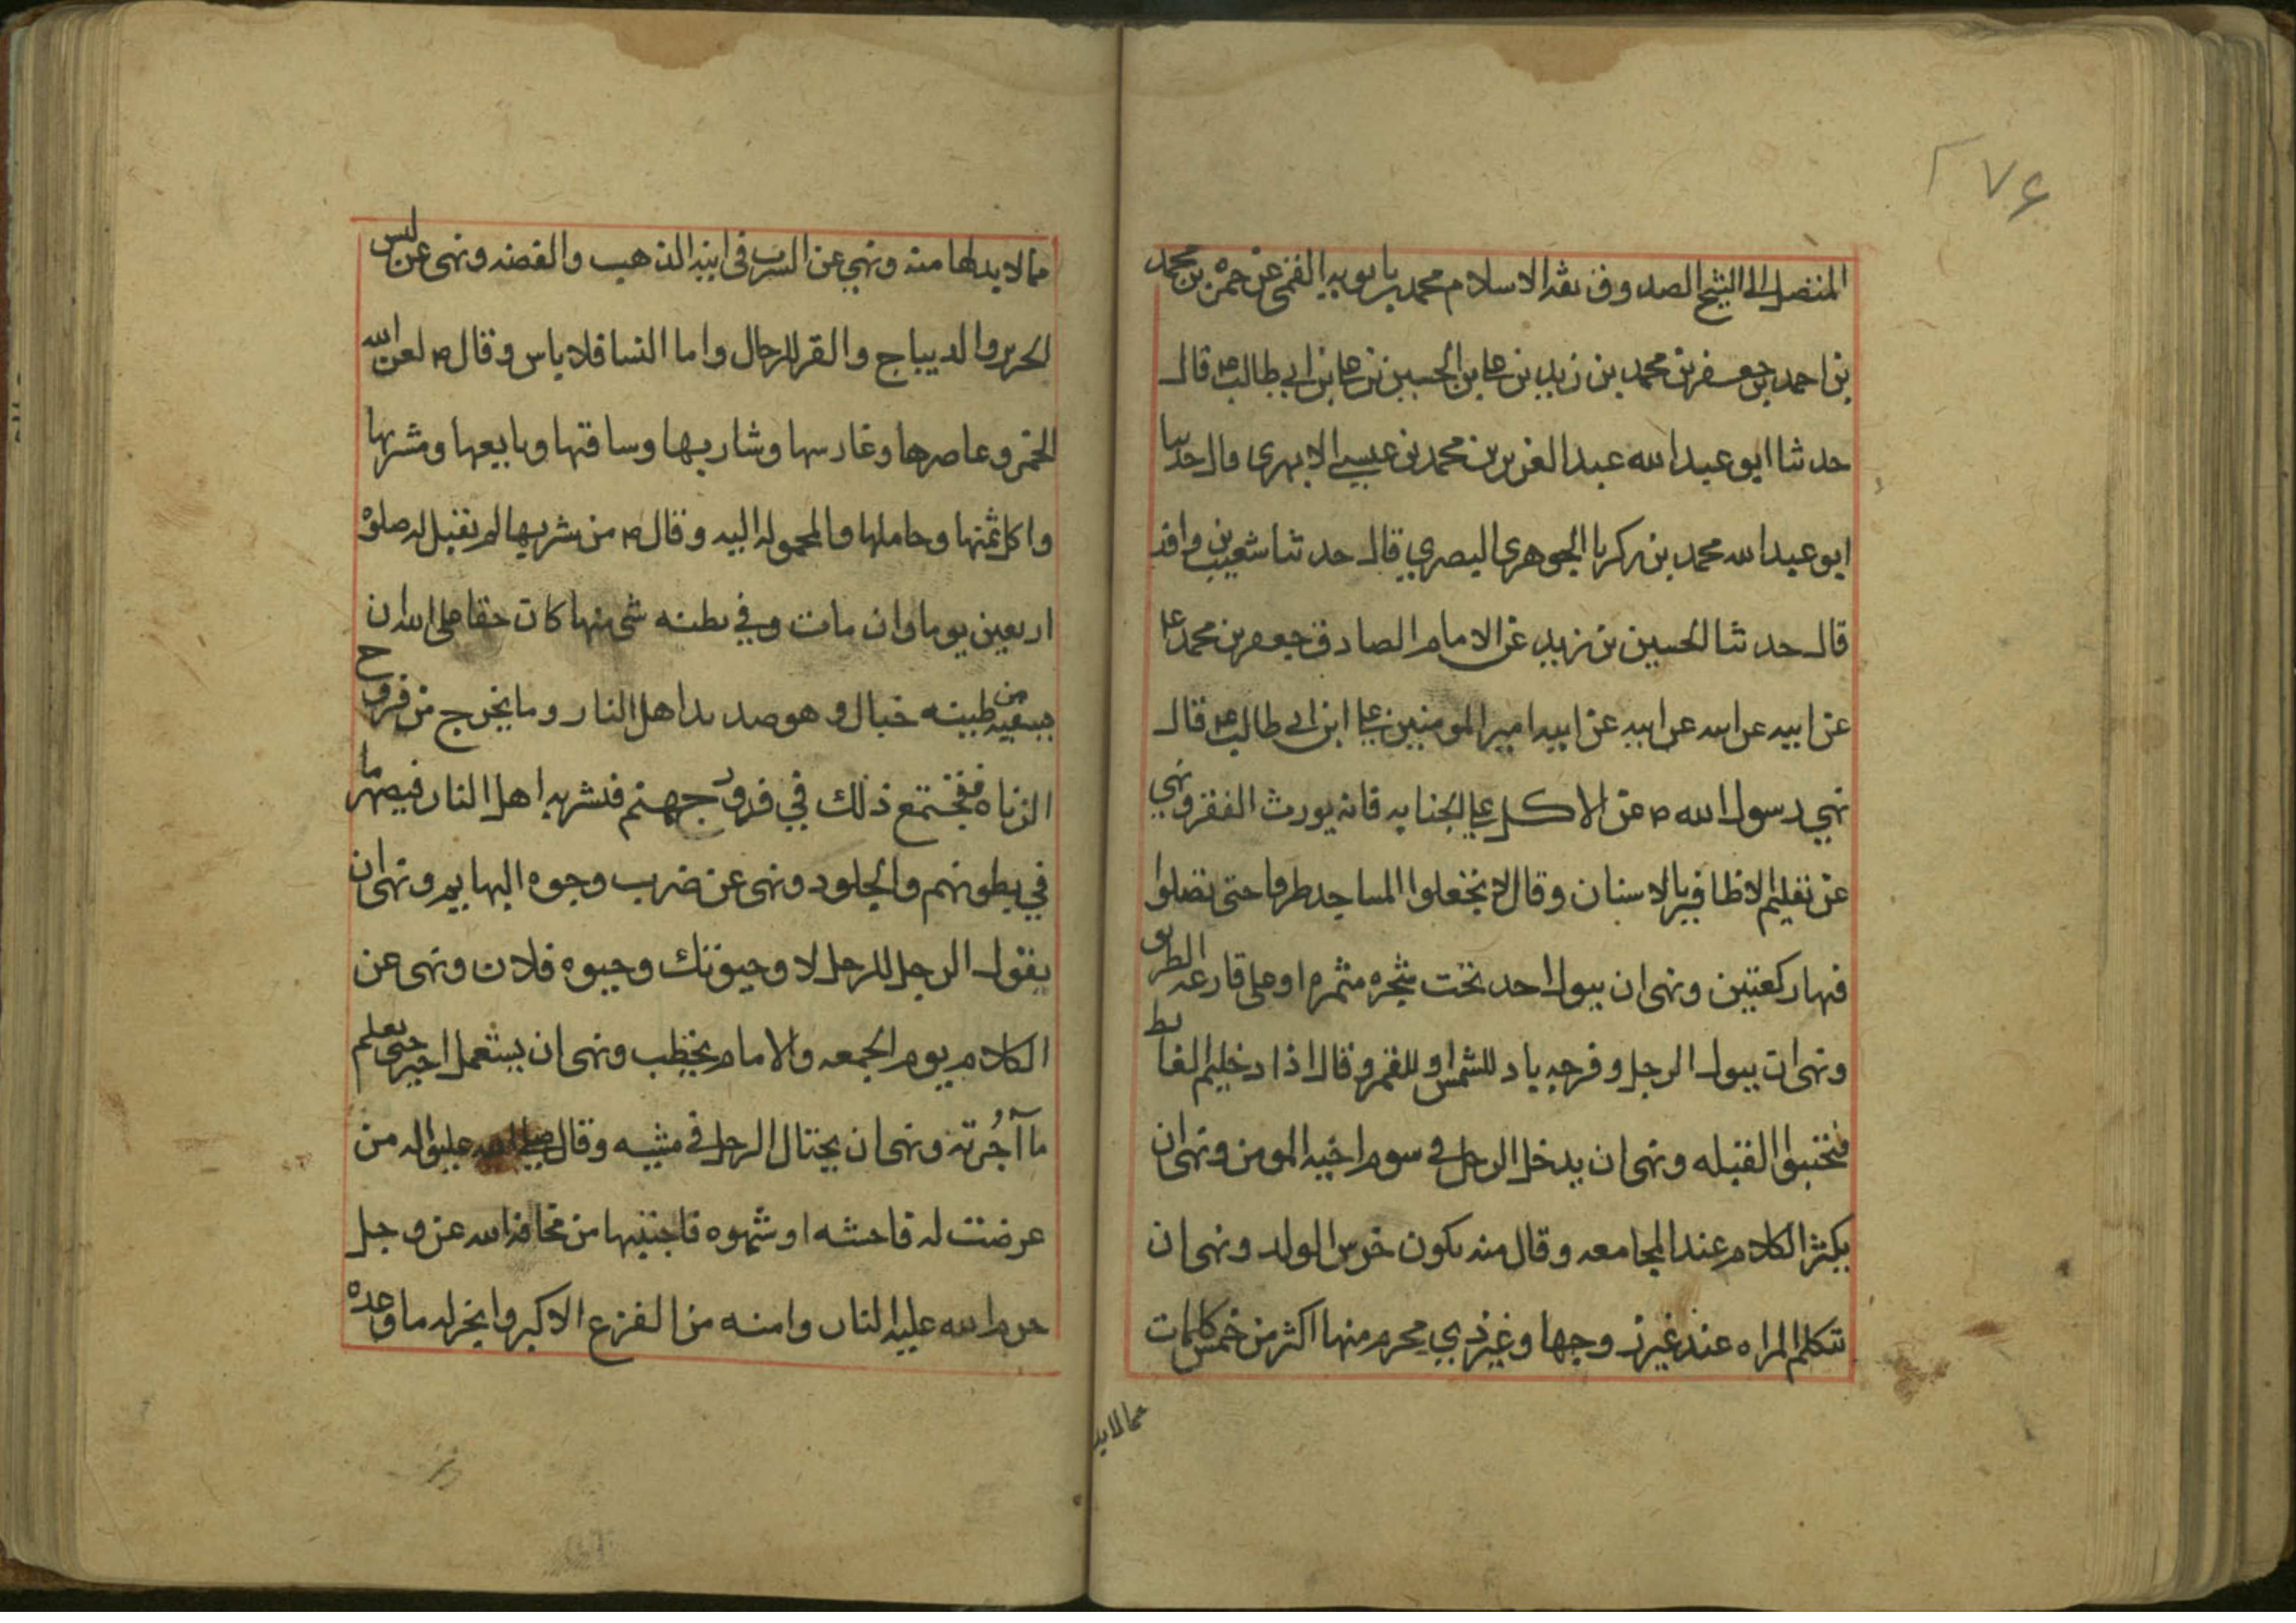 ٢٧۶
المتصل الى الشيخ الصدوق ثقه الاسلام محمد بن بابويه القمى عن حمزه بن محمد
بن احمد بن جعفر بن محمد بن زيد بن على بن الحسين بن على بن ابى طالب ع قال
حدثنا ابو عبد الله عبد العزيز بن محمد بن عيسى الابهرى قال حدثنا
ابو عبد الله محمد بن زكريا الجوهرى البصري قال حدثنا شعيب بن واقد
قال حدثنا الحسين بن زيد عن الامام الصادق جعفر بن محمد ع
عن ابيه عن ابيه عن ابيه عن ابيه امير المومنين على ابن ابى طالب ع قال
نهي رسول الله ص عن الاكل على الجنابه فانه يورث الفقر ونهي
عن تقليم الاظافير بالاسنان وقال لا تجعلوا المساجد طرقا حتى تصلوا
فيها ركعتين ونهى ان يبول احد تحت شجره مثمره او على قارعه الطريق
ونهى ان يبول الرجل وفرجه باد للشمس او للقمر وقال اذا دخلتم الغايط
فتجنبوا القبله ونهى ان يدخل الرجل في سوم اخيه المومن ونهى ان
يكثر الكلام عند المجامعه وقال منه يكون خرس الولد ونهى ان
تتكلم المراه عند غير زوجها وغير ذي محرم منها اكثر من خمس كلمات
مما لابد
مما لابد لها منه ونهي عن الشرب في انيه الذهب والفضه ونهى عن لبس
الحرير والديباج والقز للرجال واما النسا فلا باس وقال ص لعن الله
الخمر وعاصرها وغارسها وشاربها وساقتها وبايعها ومشربها
واكل ثمنها وحاملها والمحموله اليه وقال ص من شربها لم تقبل له صلوة
اربعين يوما وان مات وفي بطنه شى منها كان حقا على الله ان
يسقيه من طينه خبال وهو صديد اهل النار وما يخرج من فروج
الزناه فيجتمع ذلك في قدور جهنم فيشربه اهل النار فيصهر ما
في بطونهم والجلود ونهى عن ضرب وجوه البهايم ونهى ان
يقول الرجل للرجل لا وحيوتك وحيوه فلان ونهى عن
الكلام يوم الجمعه والامام يخطب ونهى ان يستعمل اجير حتى يعلم
ما آجُرته ونهى ان يختال الرجل في مشيه وقال صلى الله عليه واله من
عرضت له فاحشه او شهوه فاجتنبها من مخافه الله عز وجل
حرم الله عليه النار وامنه من الفزع الاكبر وانجز له ما وعده